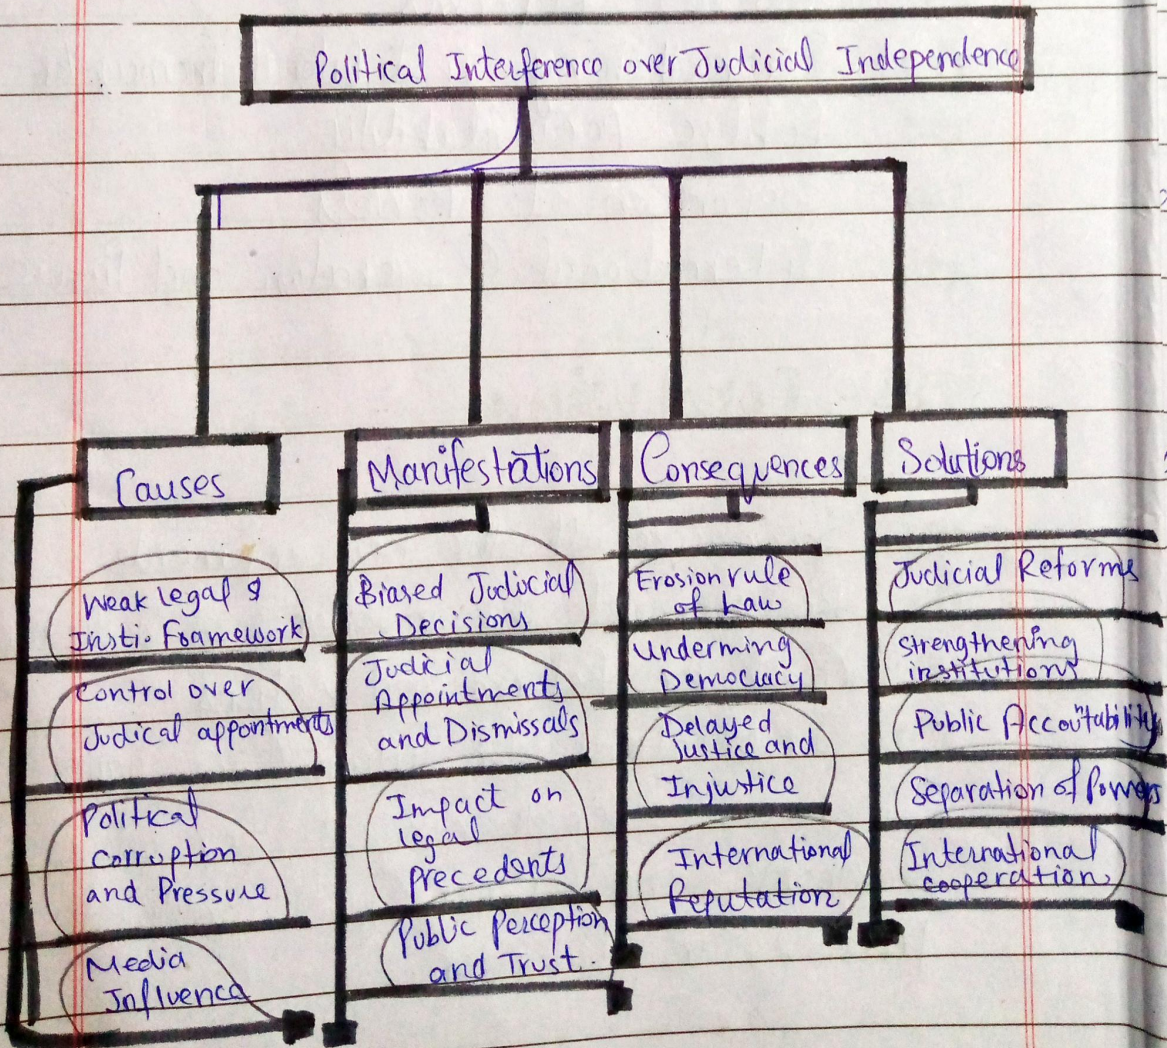 Political Interference over Judicial Independence
Causes
Weak legal &
Insti. Framework
Control over
Judical appointments
Political
corruption
and Pressure
Media
Influence
Manifestations
Biased Juducial
Decisions
Judicial
Appointments
and Dismissals
Impact on
legal
precedents
Public Perception
and Trust.
Consequences
Erosion rule
of Law
Underming
Democracy
Delayed
justice and
Injustice
International
Reputation
Solutions
Judicial Reforms
Strengthening
institutions
Public Accoutability
Separation of Powers
International
cooperation